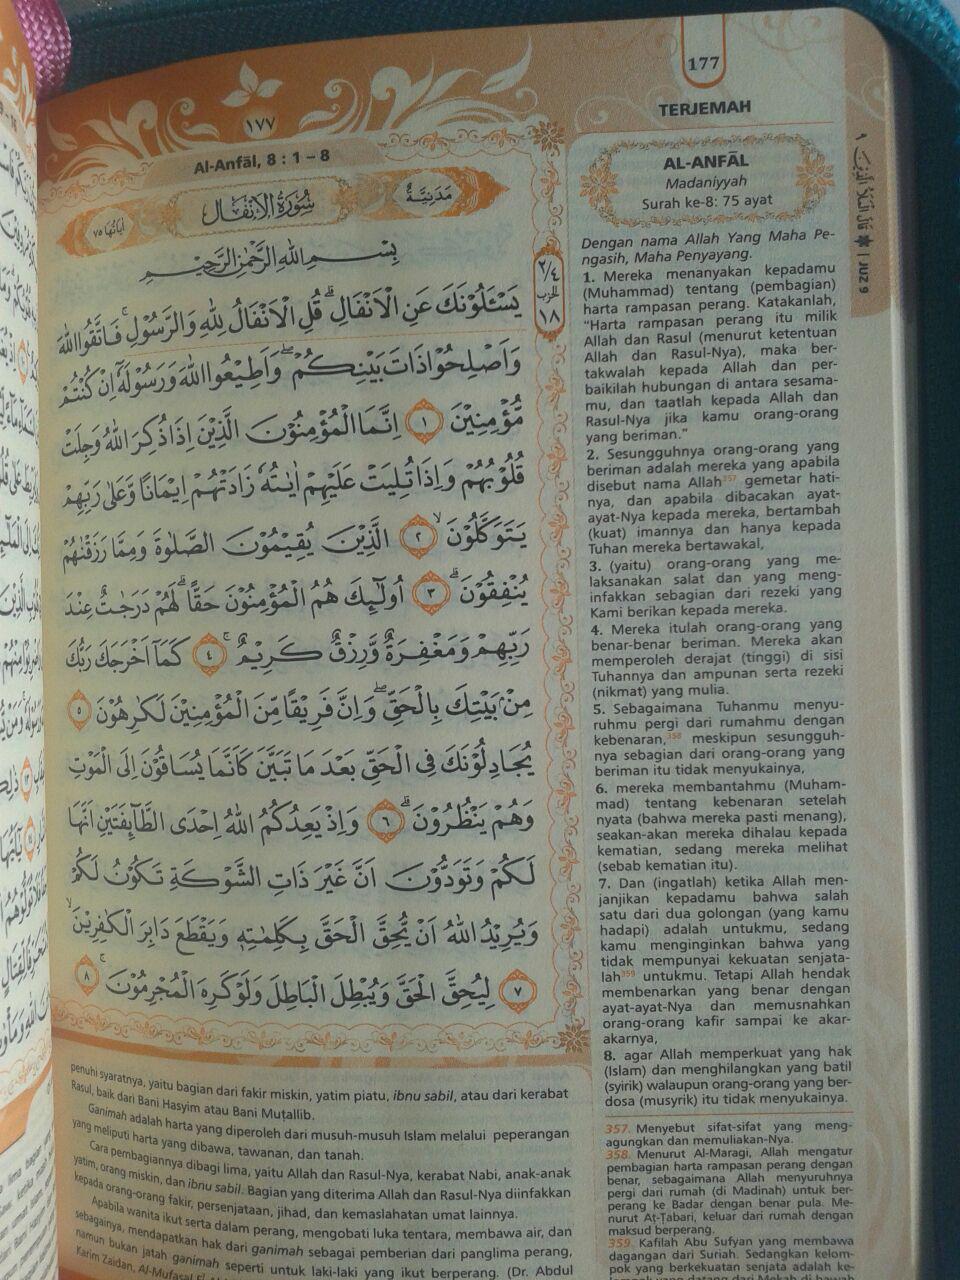 177
TERJEMAH
١٧٧
Al-Anfāl, 8 : 1 – 8
مَدَنِيَّةٌ
سُوْرَةُ الْاَنْفَالِ
اٰيَاتُهَا ٧٥
بِسْمِ اللّٰهِ الرَّحْمٰنِ الرَّحِيْمِ
يَسْـَٔلُوْنَكَ عَنِ الْاَنْفَالِۗ قُلِ الْاَنْفَالُ لِلّٰهِ وَالرَّسُوْلِۚ فَاتَّقُوا اللّٰهَ
وَاَصْلِحُوْا ذَاتَ بَيْنِكُمْۖ وَاَطِيْعُوا اللّٰهَ وَرَسُوْلَهٗٓ اِنْ كُنْتُمْ
مُّؤْمِنِيْنَ ١ اِنَّمَا الْمُؤْمِنُوْنَ الَّذِيْنَ اِذَا ذُكِرَ اللّٰهُ وَجِلَتْ
قُلُوْبُهُمْ وَاِذَا تُلِيَتْ عَلَيْهِمْ اٰيٰتُهٗ زَادَتْهُمْ اِيْمَانًا وَّعَلٰى رَبِّهِمْ
يَتَوَكَّلُوْنَۙ ٢ الَّذِيْنَ يُقِيْمُوْنَ الصَّلٰوةَ وَمِمَّا رَزَقْنٰهُمْ
يُنْفِقُوْنَۗ ٣ اُولٰۤىِٕكَ هُمُ الْمُؤْمِنُوْنَ حَقًّاۗ لَهُمْ دَرَجٰتٌ عِنْدَ
رَبِّهِمْ وَمَغْفِرَةٌ وَّرِزْقٌ كَرِيْمٌۚ ٤ كَمَآ اَخْرَجَكَ رَبُّكَ
مِنْۢ بَيْتِكَ بِالْحَقِّۖ وَاِنَّ فَرِيْقًا مِّنَ الْمُؤْمِنِيْنَ لَكٰرِهُوْنَ ٥
يُجَادِلُوْنَكَ فِى الْحَقِّ بَعْدَ مَا تَبَيَّنَ كَاَنَّمَا يُسَاقُوْنَ اِلَى الْمَوْتِ
وَهُمْ يَنْظُرُوْنَۗ ٦ وَاِذْ يَعِدُكُمُ اللّٰهُ اِحْدَى الطَّاۤىِٕفَتَيْنِ اَنَّهَا
لَكُمْ وَتَوَدُّوْنَ اَنَّ غَيْرَ ذَاتِ الشَّوْكَةِ تَكُوْنُ لَكُمْ
وَيُرِيْدُ اللّٰهُ اَنْ يُّحِقَّ الْحَقَّ بِكَلِمٰتِهٖ وَيَقْطَعَ دَابِرَ الْكٰفِرِيْنَۙ
٧ لِيُحِقَّ الْحَقَّ وَيُبْطِلَ الْبَاطِلَ وَلَوْ كَرِهَ الْمُجْرِمُوْنَۚ ٨
٢/٤
الحزب
١٨
penuhi syaratnya, yaitu bagian dari fakir miskin, yatim piatu, ibnu sabil, atau dari kerabat
Rasul, baik dari Bani Hasyim atau Bani Muṭallib.
Ganimah adalah harta yang diperoleh dari musuh-musuh Islam melalui peperangan
yang meliputi harta yang dibawa, tawanan, dan tanah.
Cara pembagiannya dibagi lima, yaitu Allah dan Rasul-Nya, kerabat Nabi, anak-anak
yatim, orang miskin, dan ibnu sabil. Bagian yang diterima Allah dan Rasul-Nya diinfakkan
kepada orang-orang fakir, persenjataan, jihad, dan kemaslahatan umat lainnya.
Apabila wanita ikut serta dalam perang, mengobati luka tentara, membawa air, dan
sebagainya, mendapatkan hak dari ganimah sebagai pemberian dari panglima perang,
namun bukan jatah ganimah seperti untuk laki-laki yang ikut berperang. (Dr. Abdul
Karim Zaidan, Al-Mufaṣal
AL-ANFĀL
Madaniyyah
Surah ke-8: 75 ayat
Dengan nama Allah Yang Maha Pe-
ngasih, Maha Penyayang.
1. Mereka menanyakan kepadamu
(Muhammad) tentang (pembagian)
harta rampasan perang. Katakanlah,
“Harta rampasan perang itu milik
Allah dan Rasul (menurut ketentuan
Allah dan Rasul-Nya), maka ber-
takwalah kepada Allah dan per-
baikilah hubungan di antara sesama-
mu, dan taatlah kepada Allah dan
Rasul-Nya jika kamu orang-orang
yang beriman.”
2. Sesungguhnya orang-orang yang
beriman adalah mereka yang apabila
disebut nama Allah357 gemetar hati-
nya, dan apabila dibacakan ayat-
ayat-Nya kepada mereka, bertambah
(kuat) imannya dan hanya kepada
Tuhan mereka bertawakal,
3. (yaitu) orang-orang yang me-
laksanakan salat dan yang meng-
infakkan sebagian dari rezeki yang
Kami berikan kepada mereka.
4. Mereka itulah orang-orang yang
benar-benar beriman. Mereka akan
memperoleh derajat (tinggi) di sisi
Tuhannya dan ampunan serta rezeki
(nikmat) yang mulia.
5. Sebagaimana Tuhanmu menyu-
ruhmu pergi dari rumahmu dengan
kebenaran,358 meskipun sesungguh-
nya sebagian dari orang-orang yang
beriman itu tidak menyukainya,
6. mereka membantahmu (Muham-
mad) tentang kebenaran setelah
nyata (bahwa mereka pasti menang),
seakan-akan mereka dihalau kepada
kematian, sedang mereka melihat
(sebab kematian itu).
7. Dan (ingatlah) ketika Allah men-
janjikan kepadamu bahwa salah
satu dari dua golongan (yang kamu
hadapi) adalah untukmu, sedang
kamu menginginkan bahwa yang
tidak mempunyai kekuatan senjata-
lah359 untukmu. Tetapi Allah hendak
membenarkan yang benar dengan
ayat-ayat-Nya dan memusnahkan
orang-orang kafir sampai ke akar-
akarnya,
8. agar Allah memperkuat yang hak
(Islam) dan menghilangkan yang batil
(syirik) walaupun orang-orang yang ber-
dosa (musyrik) itu tidak menyukainya.
357. Menyebut sifat-sifat yang meng-
agungkan dan memuliakan-Nya.
358. Menurut Al-Maragi, Allah mengatur
pembagian harta rampasan perang dengan
benar, sebagaimana Allah menyuruhnya
pergi dari rumah (di Madinah) untuk ber-
perang ke Badar dengan benar pula. Me-
nurut Aṭ-Ṭabari, keluar dari rumah dengan
maksud berperang.
359. Kafilah Abu Sufyan yang membawa
dagangan dari Suriah. Sedangkan kelom-
pok yang berkekuatan senjata adalah ke-
JUZ 9